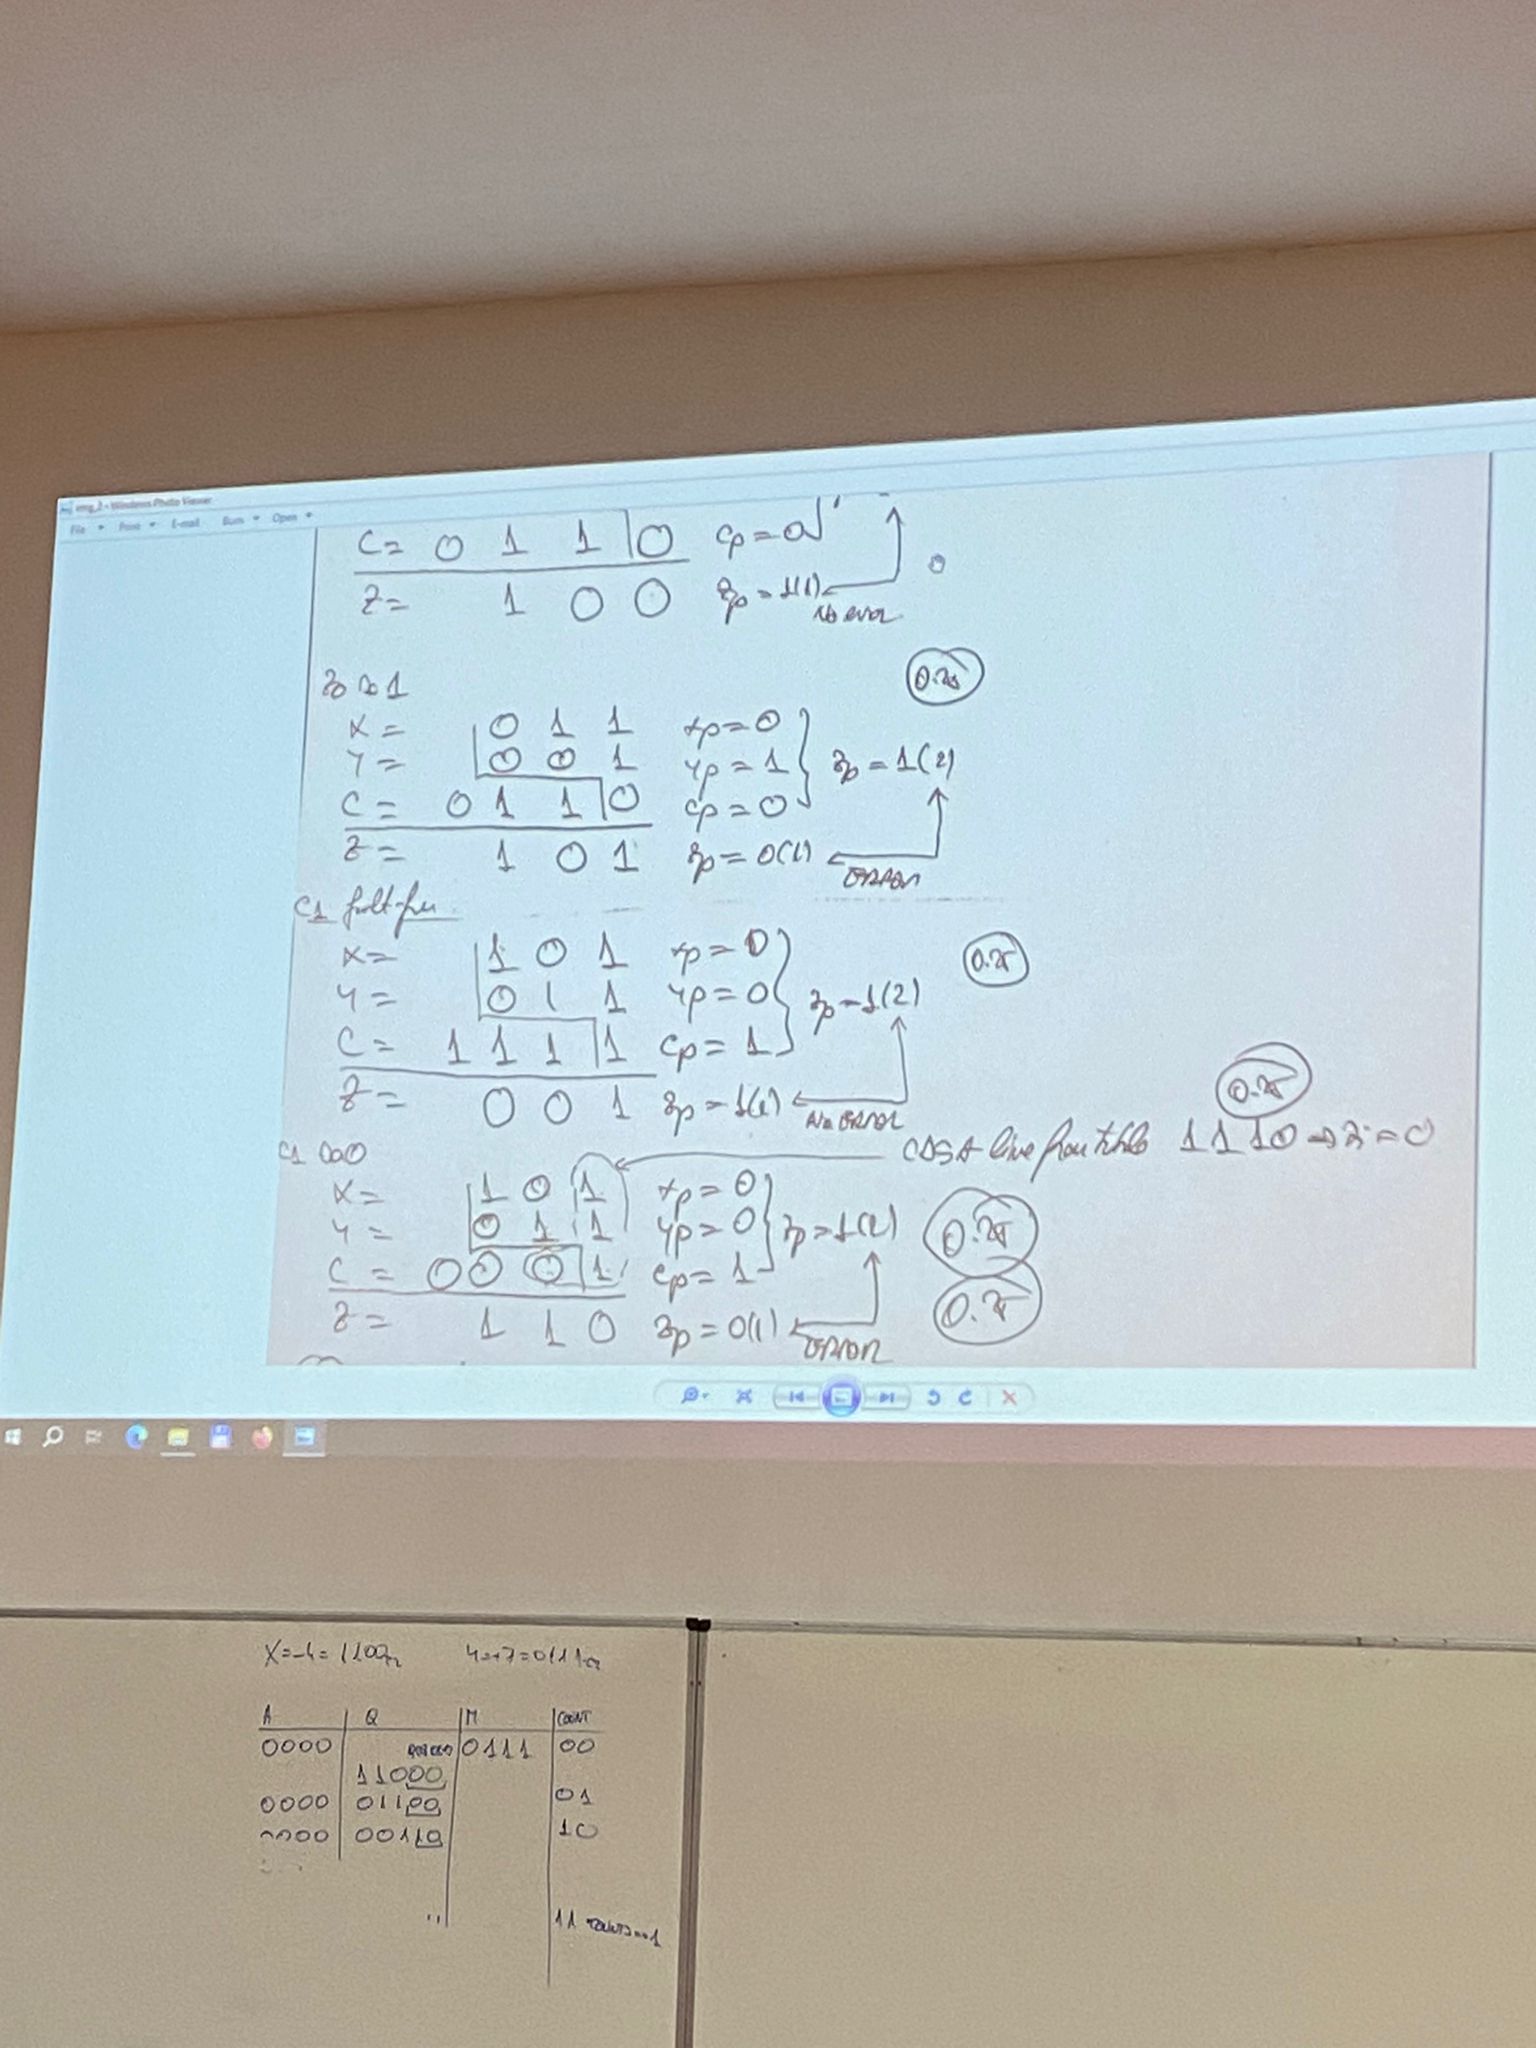 File Print E-mail Burn Open
C= 0 1 1 0 cp=0
Z= 1 0 0 zp=1(1) No error 0
z0 sa1 0.25
X= 0 1 1 xp=0
Y= 0 0 1 yp=1 zp=1(2)
C= 0 1 1 0 cp=0
Z= 1 0 1 zp=0(1) ERROR
C1 fault-free
X= 1 0 1 xp=0 0.25
Y= 0 1 1 yp=0 zp=1(2)
C= 1 1 1 1 cp=1
Z= 0 0 1 zp=1(1) No ERROR 0.25
C1 sa0 line from table 1 1 1 0 ⇒ =0
X= 1 0 1 xp=0
Y= 0 1 1 yp=0 zp=1(2) 0.25
C= 0 0 0 1 cp=1
Z= 1 1 0 zp=0(1) ERROR 0.25
X=-4=1100 Y=+7=0111
A Q M COUNT
0000 0111 00
11000
0000 01100 01
0000 00110 10
11